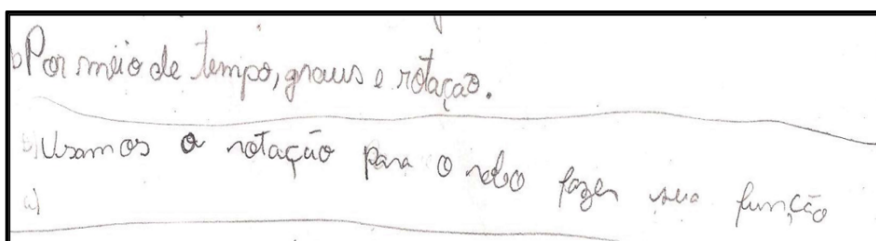 b) Por meio de tempo, graus e rotação.
b) Usamos a rotação para o robo fazer sua função
a)